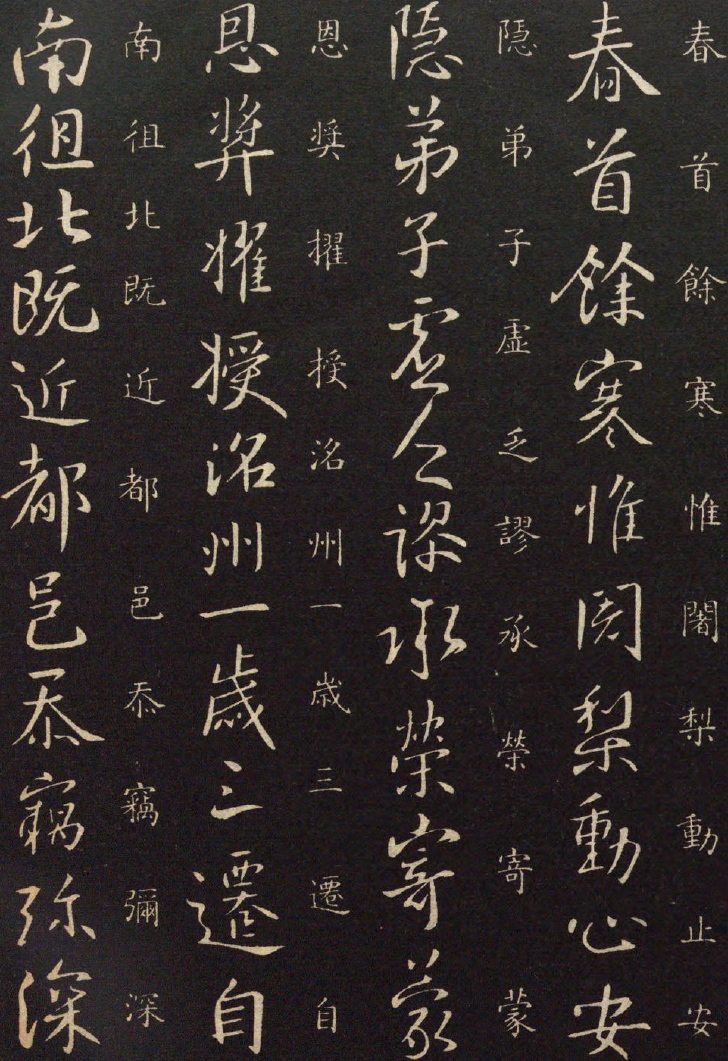 春首餘寒惟闍梨動止安
春首餘寒惟闍梨動止安
隱弟子虛乏謬承榮寄蒙
隱弟子虛乏謬承榮寄蒙
恩獎擢授洺州一歲三遷自
恩獎擢授洺州一歲三遷自
南徂北既近都邑忝竊彌深
南徂北既近都邑忝竊彌深